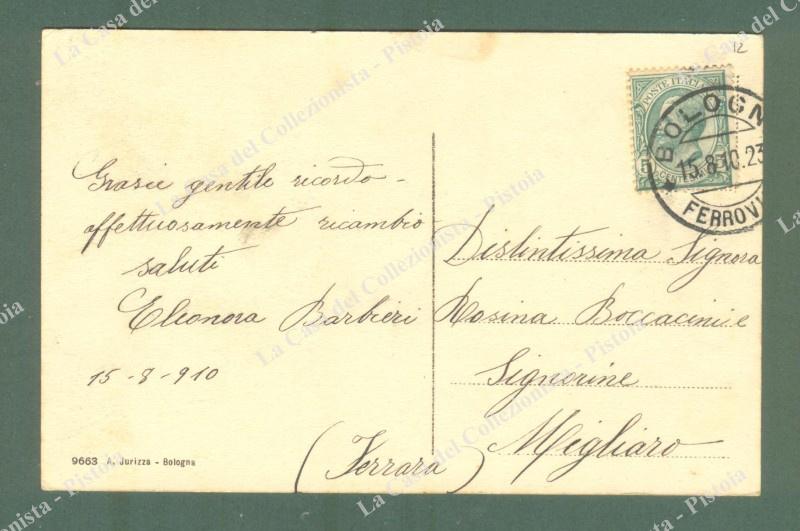 12
POSTE ITALIANE
BOLOGN
15.8.10.23
FERROVI
Grazie gentile ricordo -
affettuosamente ricambio
saluti
Eleonora Barbieri
15-8-910
Distintissima Signora
Rosina Boccacini e
Signorine
Migliaro
(Ferrara)
9663 A. Jurizza - Bologna
La Casa del Collezionista - Pistoia